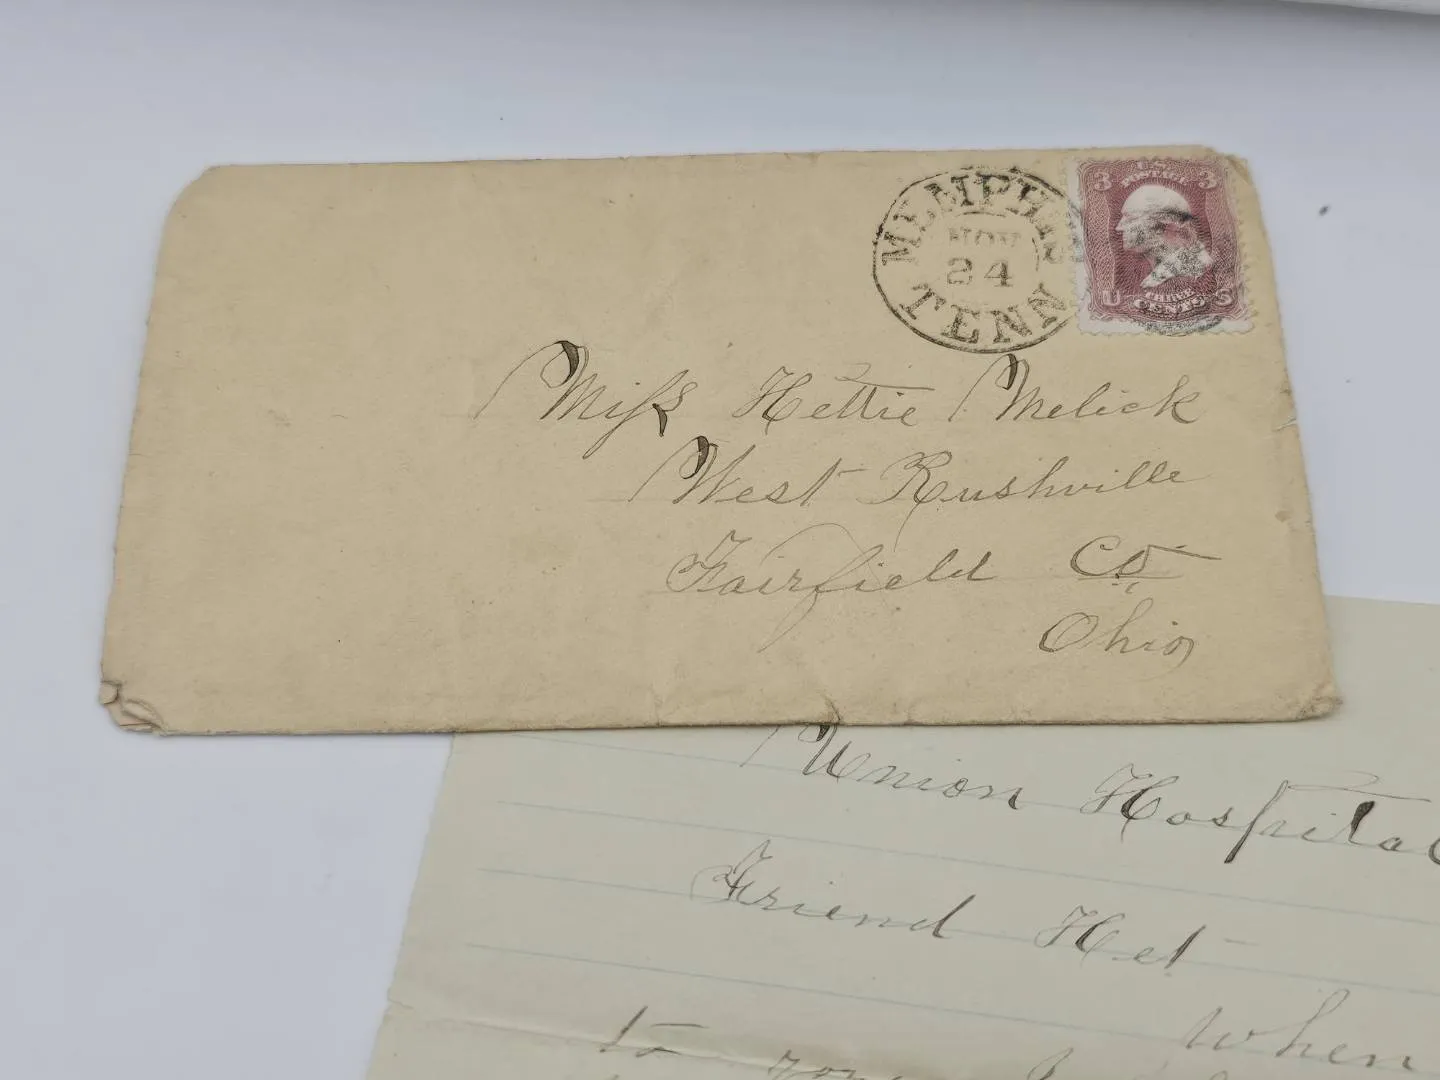 MEMPHIS
NOV
24
TENN
3 U.S. 3
POSTAGE
THREE
U CENTS S
Miss Hettie Melick
West Rushville
Fairfield Co.
Ohio
Union Hospital
Friend Het
When
to you I